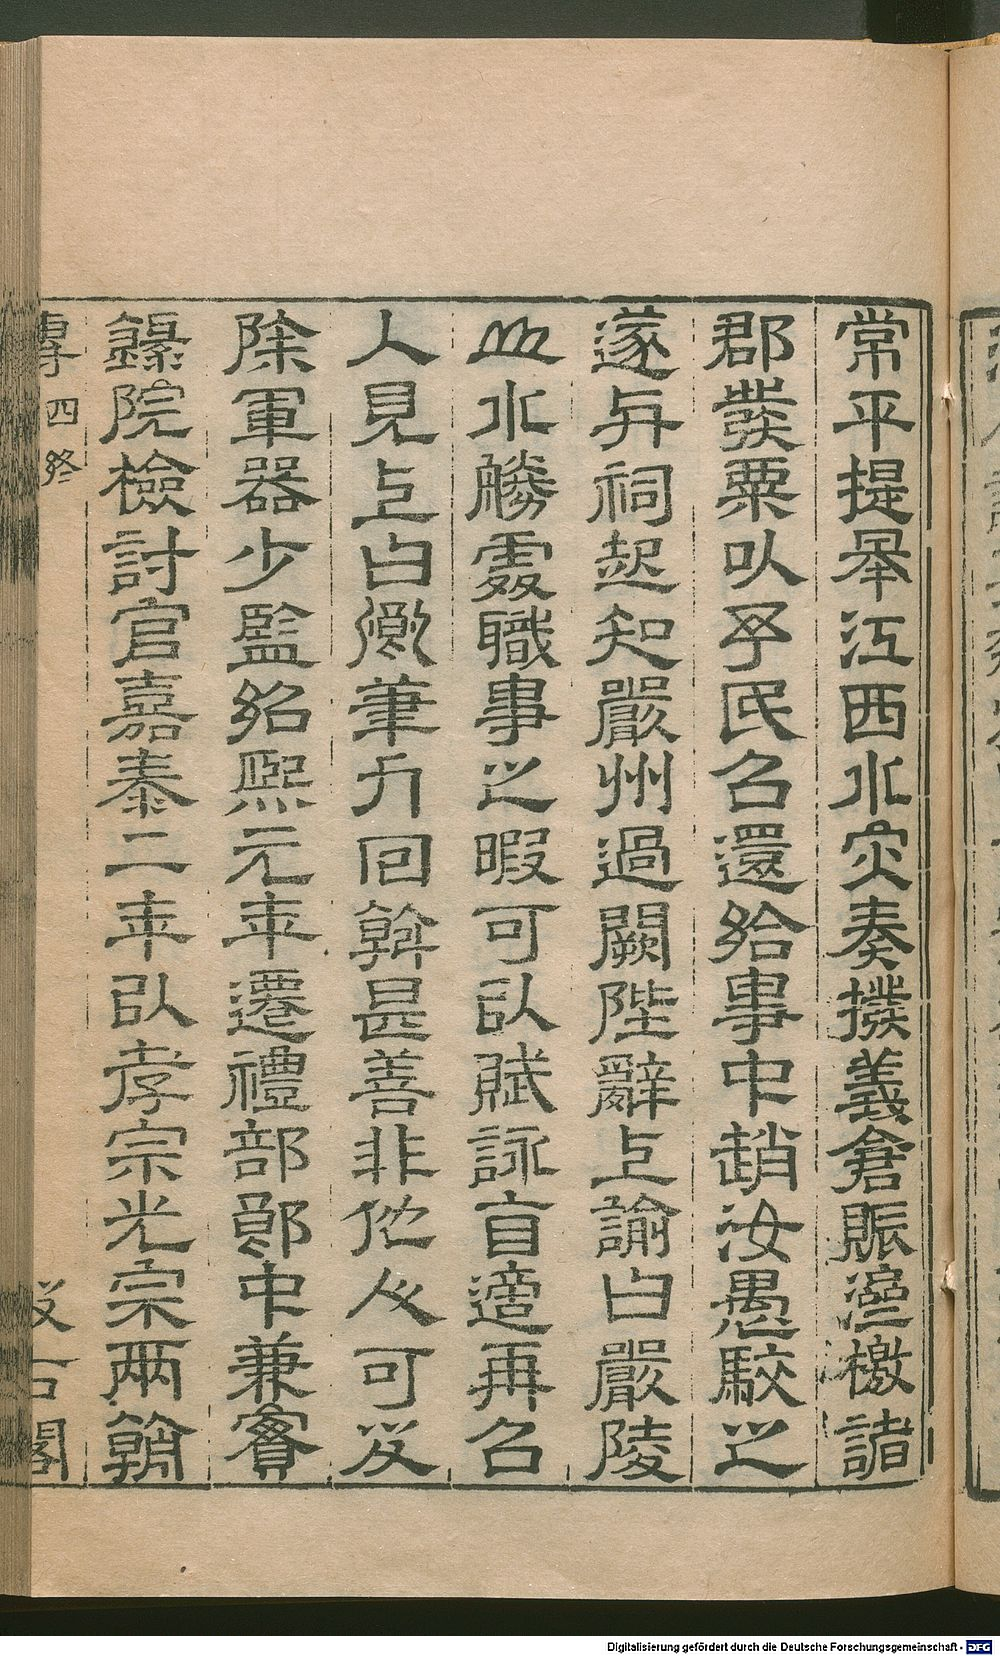 常平提舉江西水災奏撥義倉賑濟檄諸
郡發粟以予民召還給事中趙汝愚駮之
遂与祠起知嚴州過闕陛辭上諭曰嚴陵
山水勝處職事之暇可以賦詠自適再召
入見上曰卿筆力回斡甚善非他人可及
除軍器少監紹熙元年遷禮部郎中兼實
錄院檢討官嘉泰二年以孝宗光宗兩朝
傳 四終 汲古閣
Digitalisierung gefördert durch die Deutsche Forschungsgemeinschaft - DFG